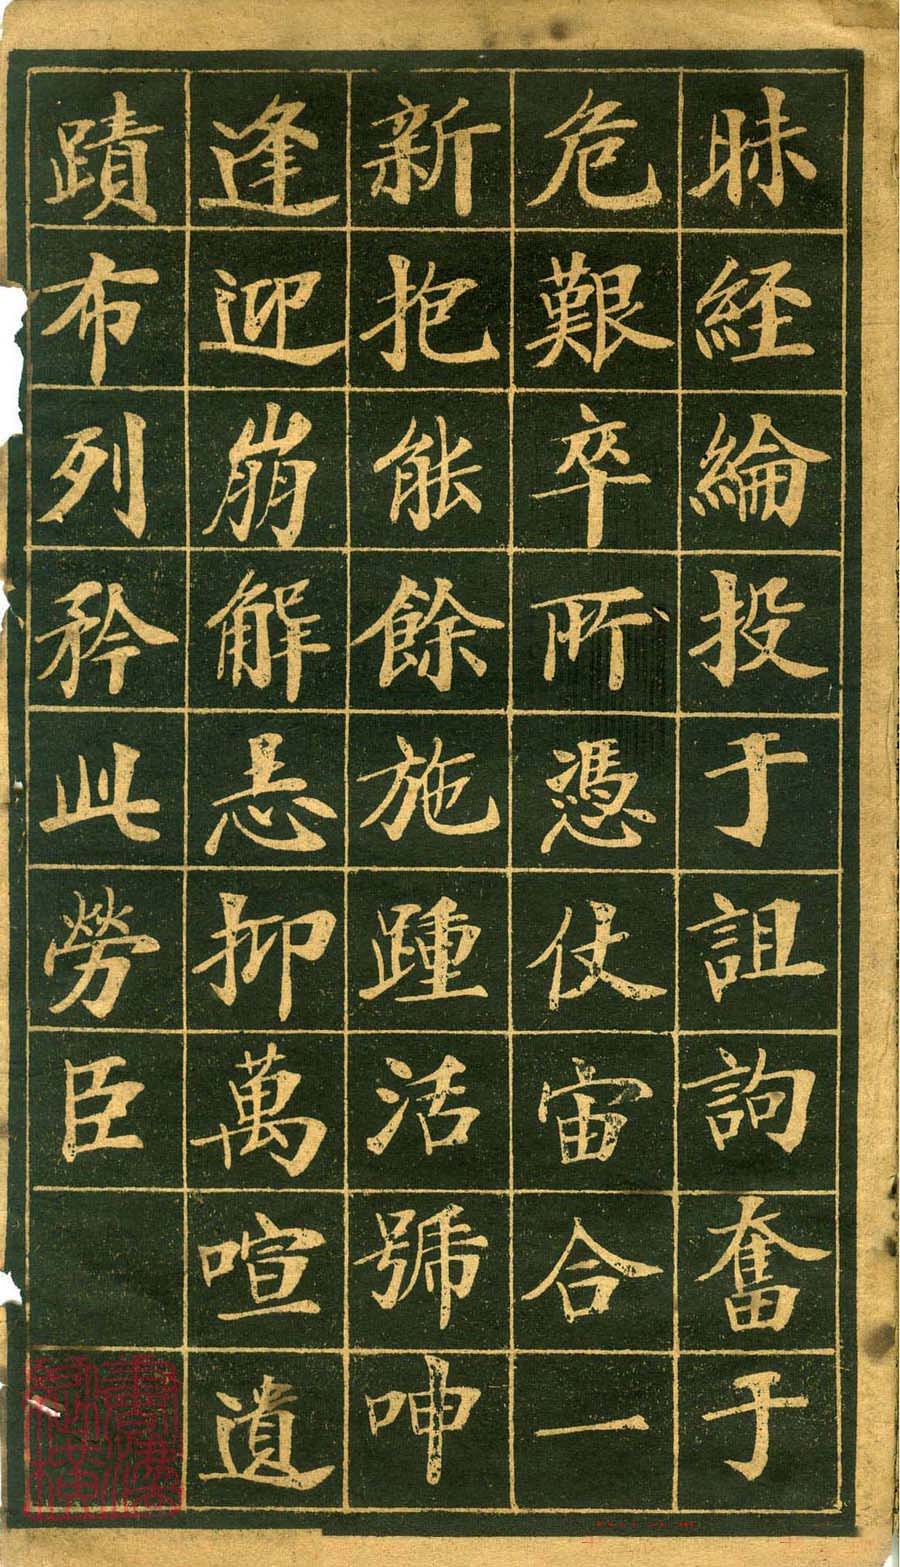 昧經綸投于詛訽奮于
危艱卒所憑仗宙合一
新抱能餘施踵活號呻
逢迎崩解恐抑萬喧遺
蹟布列矜此勞臣